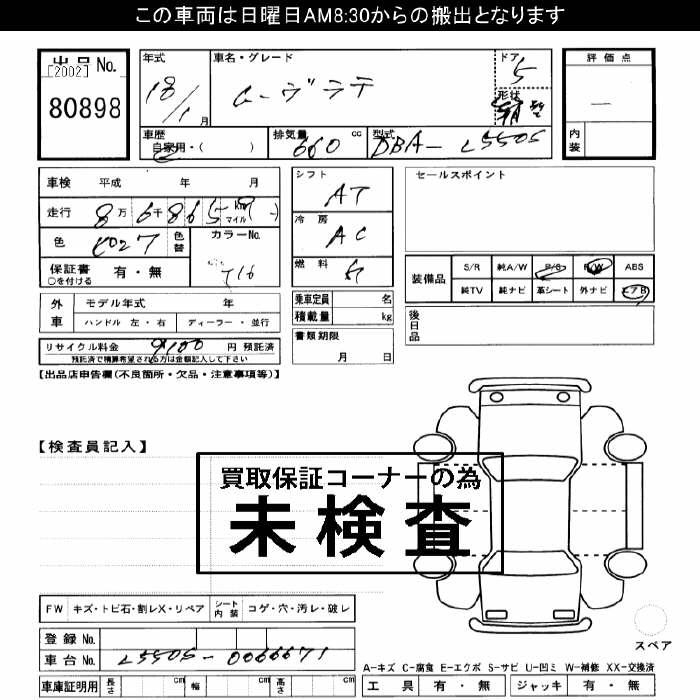 この車両は日曜日AM8:30からの搬出となります
出品No.
[2002]
80898
年式 18/1月
車名・グレード ムーヴラテ
ドア 5
形状
評価点 —
内装
車歴 自家用・( )
排気量 660 cc
型式 DBA- L550S
車検 平成 年 月
走行 8万6千865 km マイル
色 色替
カラーNo. T16
保証書 有・無
○を付ける
シフト AT
冷房 AC
燃料
セールスポイント
装備品 S/R 純A/W P/S P/W ABS
純TV 純ナビ 革シート 外ナビ エアB
外車 モデル年式 年
ハンドル 左・右 ディーラー・並行
乗車定員 名
積載量 kg
後日品
リサイクル料金 9100 円 預託済
預託済で精算希望される方は金額記入して下さい
書類期限
月 日
【出品店申告欄(不良箇所・欠品・注意事項等)】
【検査員記入】
買取保証コーナーの為
未検査
FW キズ・トビ石・割レX・リペア シート内装 コゲ・穴・汚レ・破レ
登録No.
車台No. L550S-0066671
スペア
A-キズ C-腐食 E-エクボ S-サビ U-凹ミ W-補修 XX-交換済
車庫証明用 長さ cm 幅 cm 高さ cm
工具 有・無 ジャッキ 有・無